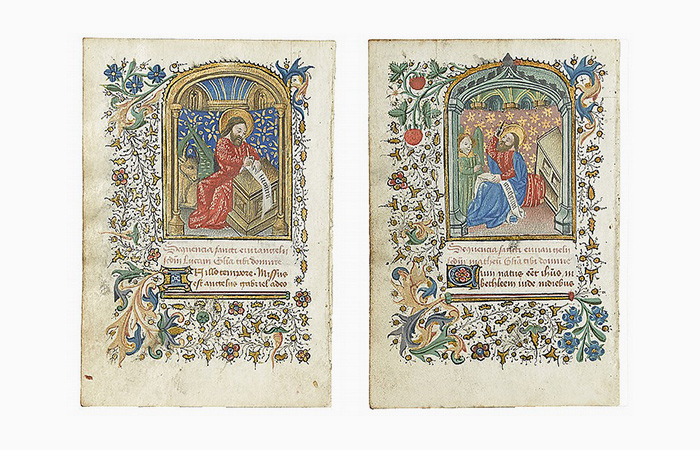 Sequencia sancti euuangelij
scdm Lucam Glia tibi domine
In illo tempore. Missus
est angelus gabriel adeo
Sequencia sancti euuangelij
scdm matheu Glia tibi domine
Cum natus eet ihus in
bethleem iude indiebus